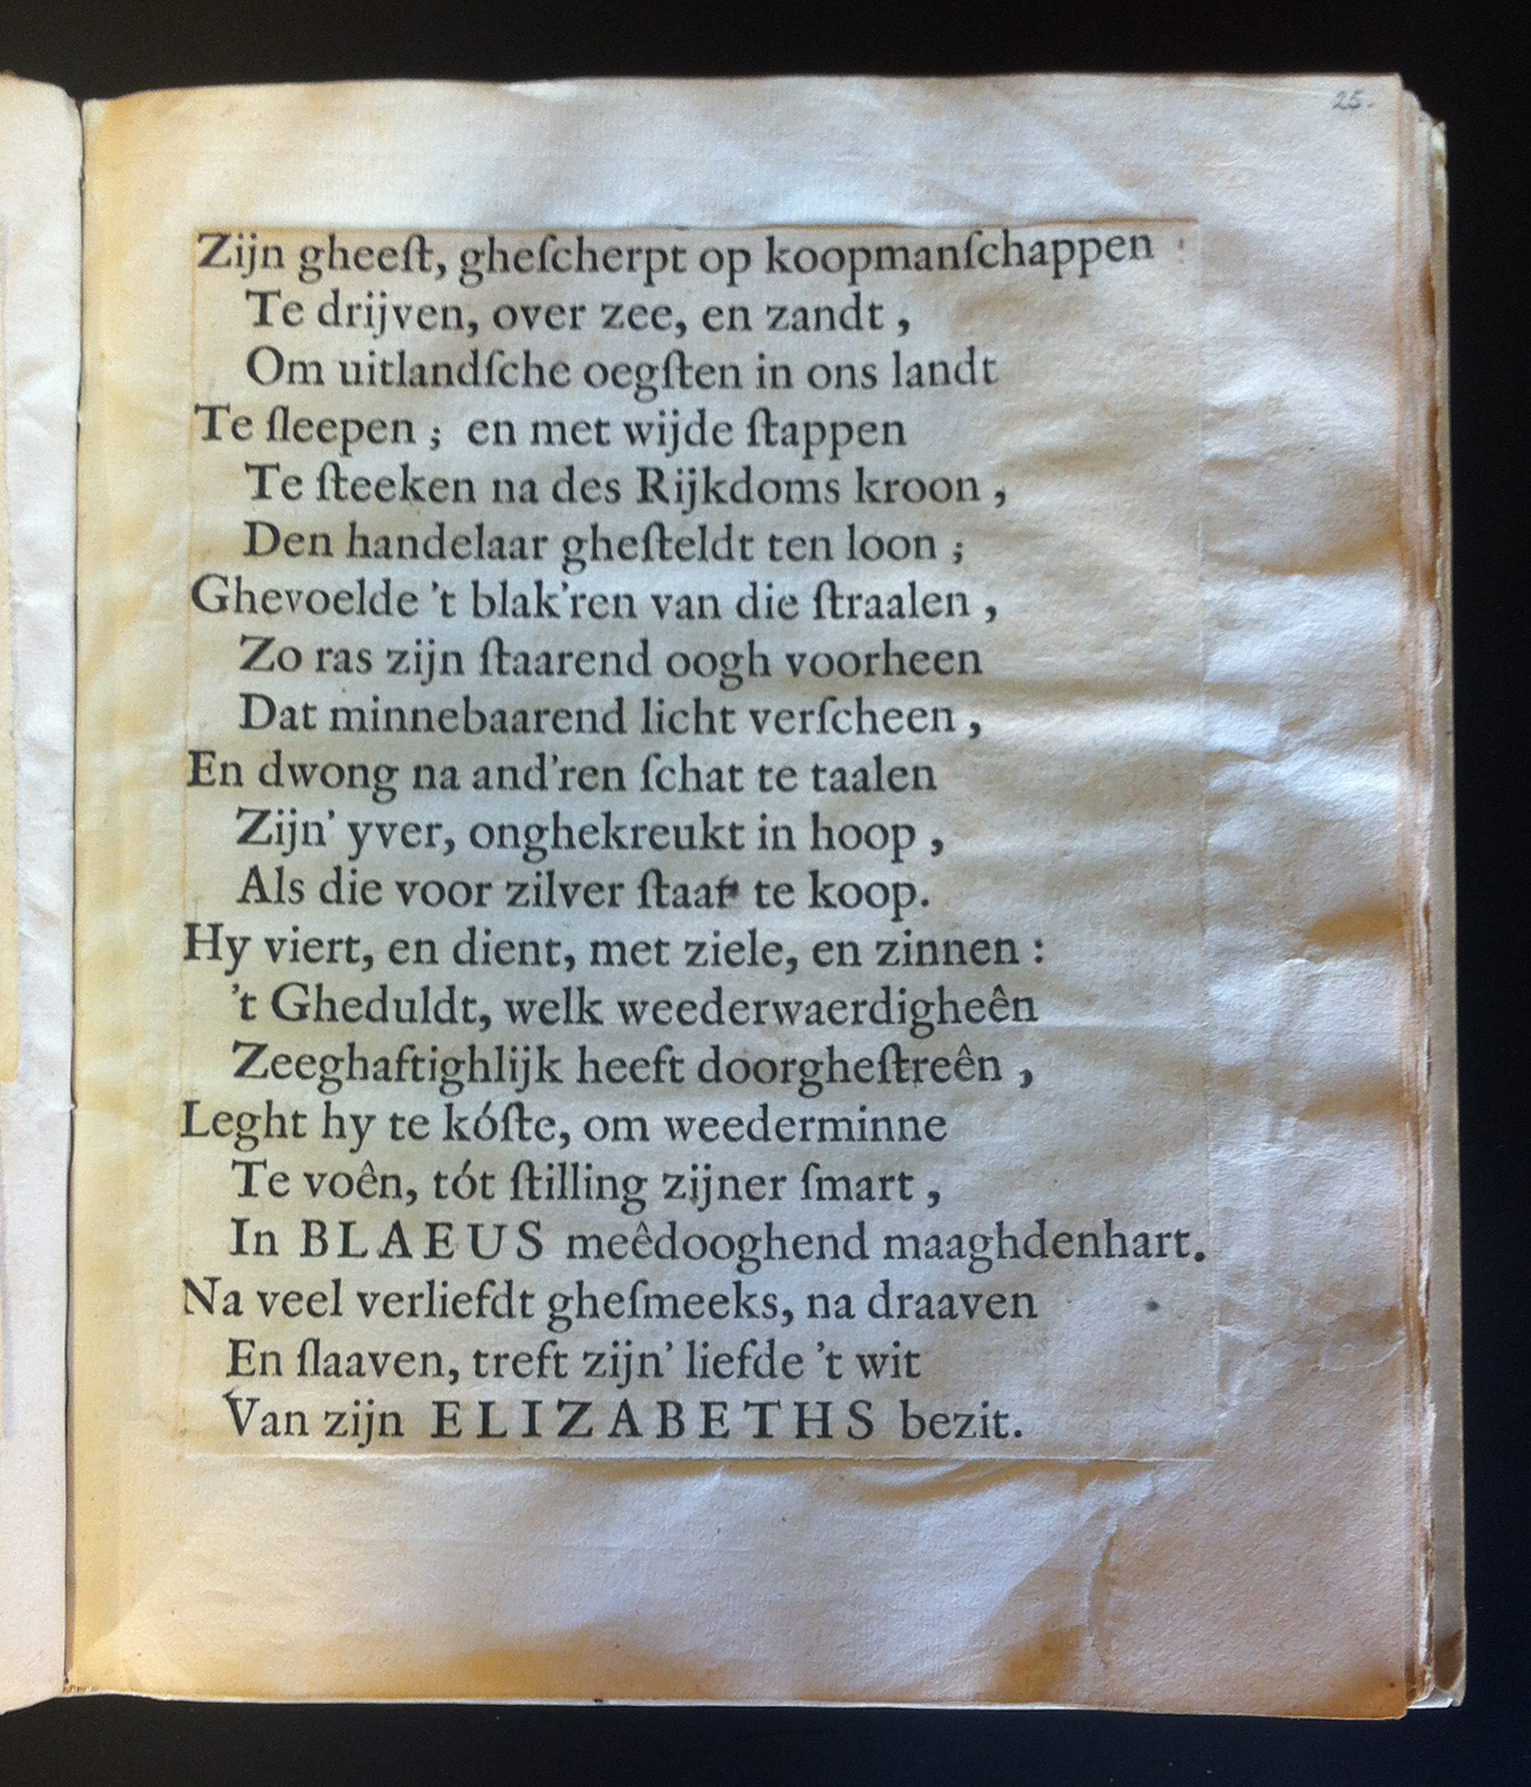 25.
Zijn gheeſt, gheſcherpt op koopmanſchappen
Te drijven, over zee, en zandt,
Om uitlandſche oegſten in ons landt
Te ſleepen; en met wijde ſtappen
Te ſteeken na des Rijkdoms kroon,
Den handelaar gheſteldt ten loon;
Ghevoelde 't blak'ren van die ſtraalen,
Zo ras zijn ſtaarend oogh voorheen
Dat minnebaarend licht verſcheen,
En dwong na and'ren ſchat te taalen
Zijn' yver, onghekreukt in hoop,
Als die voor zilver ſtaat te koop.
Hy viert, en dient, met ziele, en zinnen:
't Gheduldt, welk weederwaerdigheên
Zeeghaftighlijk heeft doorgheſtreên,
Leght hy te kóſte, om weederminne
Te voên, tót ſtilling zijner ſmart,
In BLAEUS meêdooghend maaghdenhart.
Na veel verliefdt gheſmeeks, na draaven
En ſlaaven, treft zijn' liefde 't wit
Van zijn ELIZABETHS bezit.